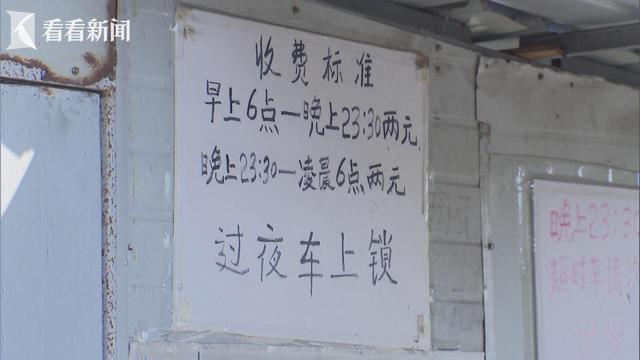 看看新闻
收费标准
早上6点—晚上23:30两元
晚上23:30—凌晨6点两元
过夜车上锁
晚上23:3
超时车请